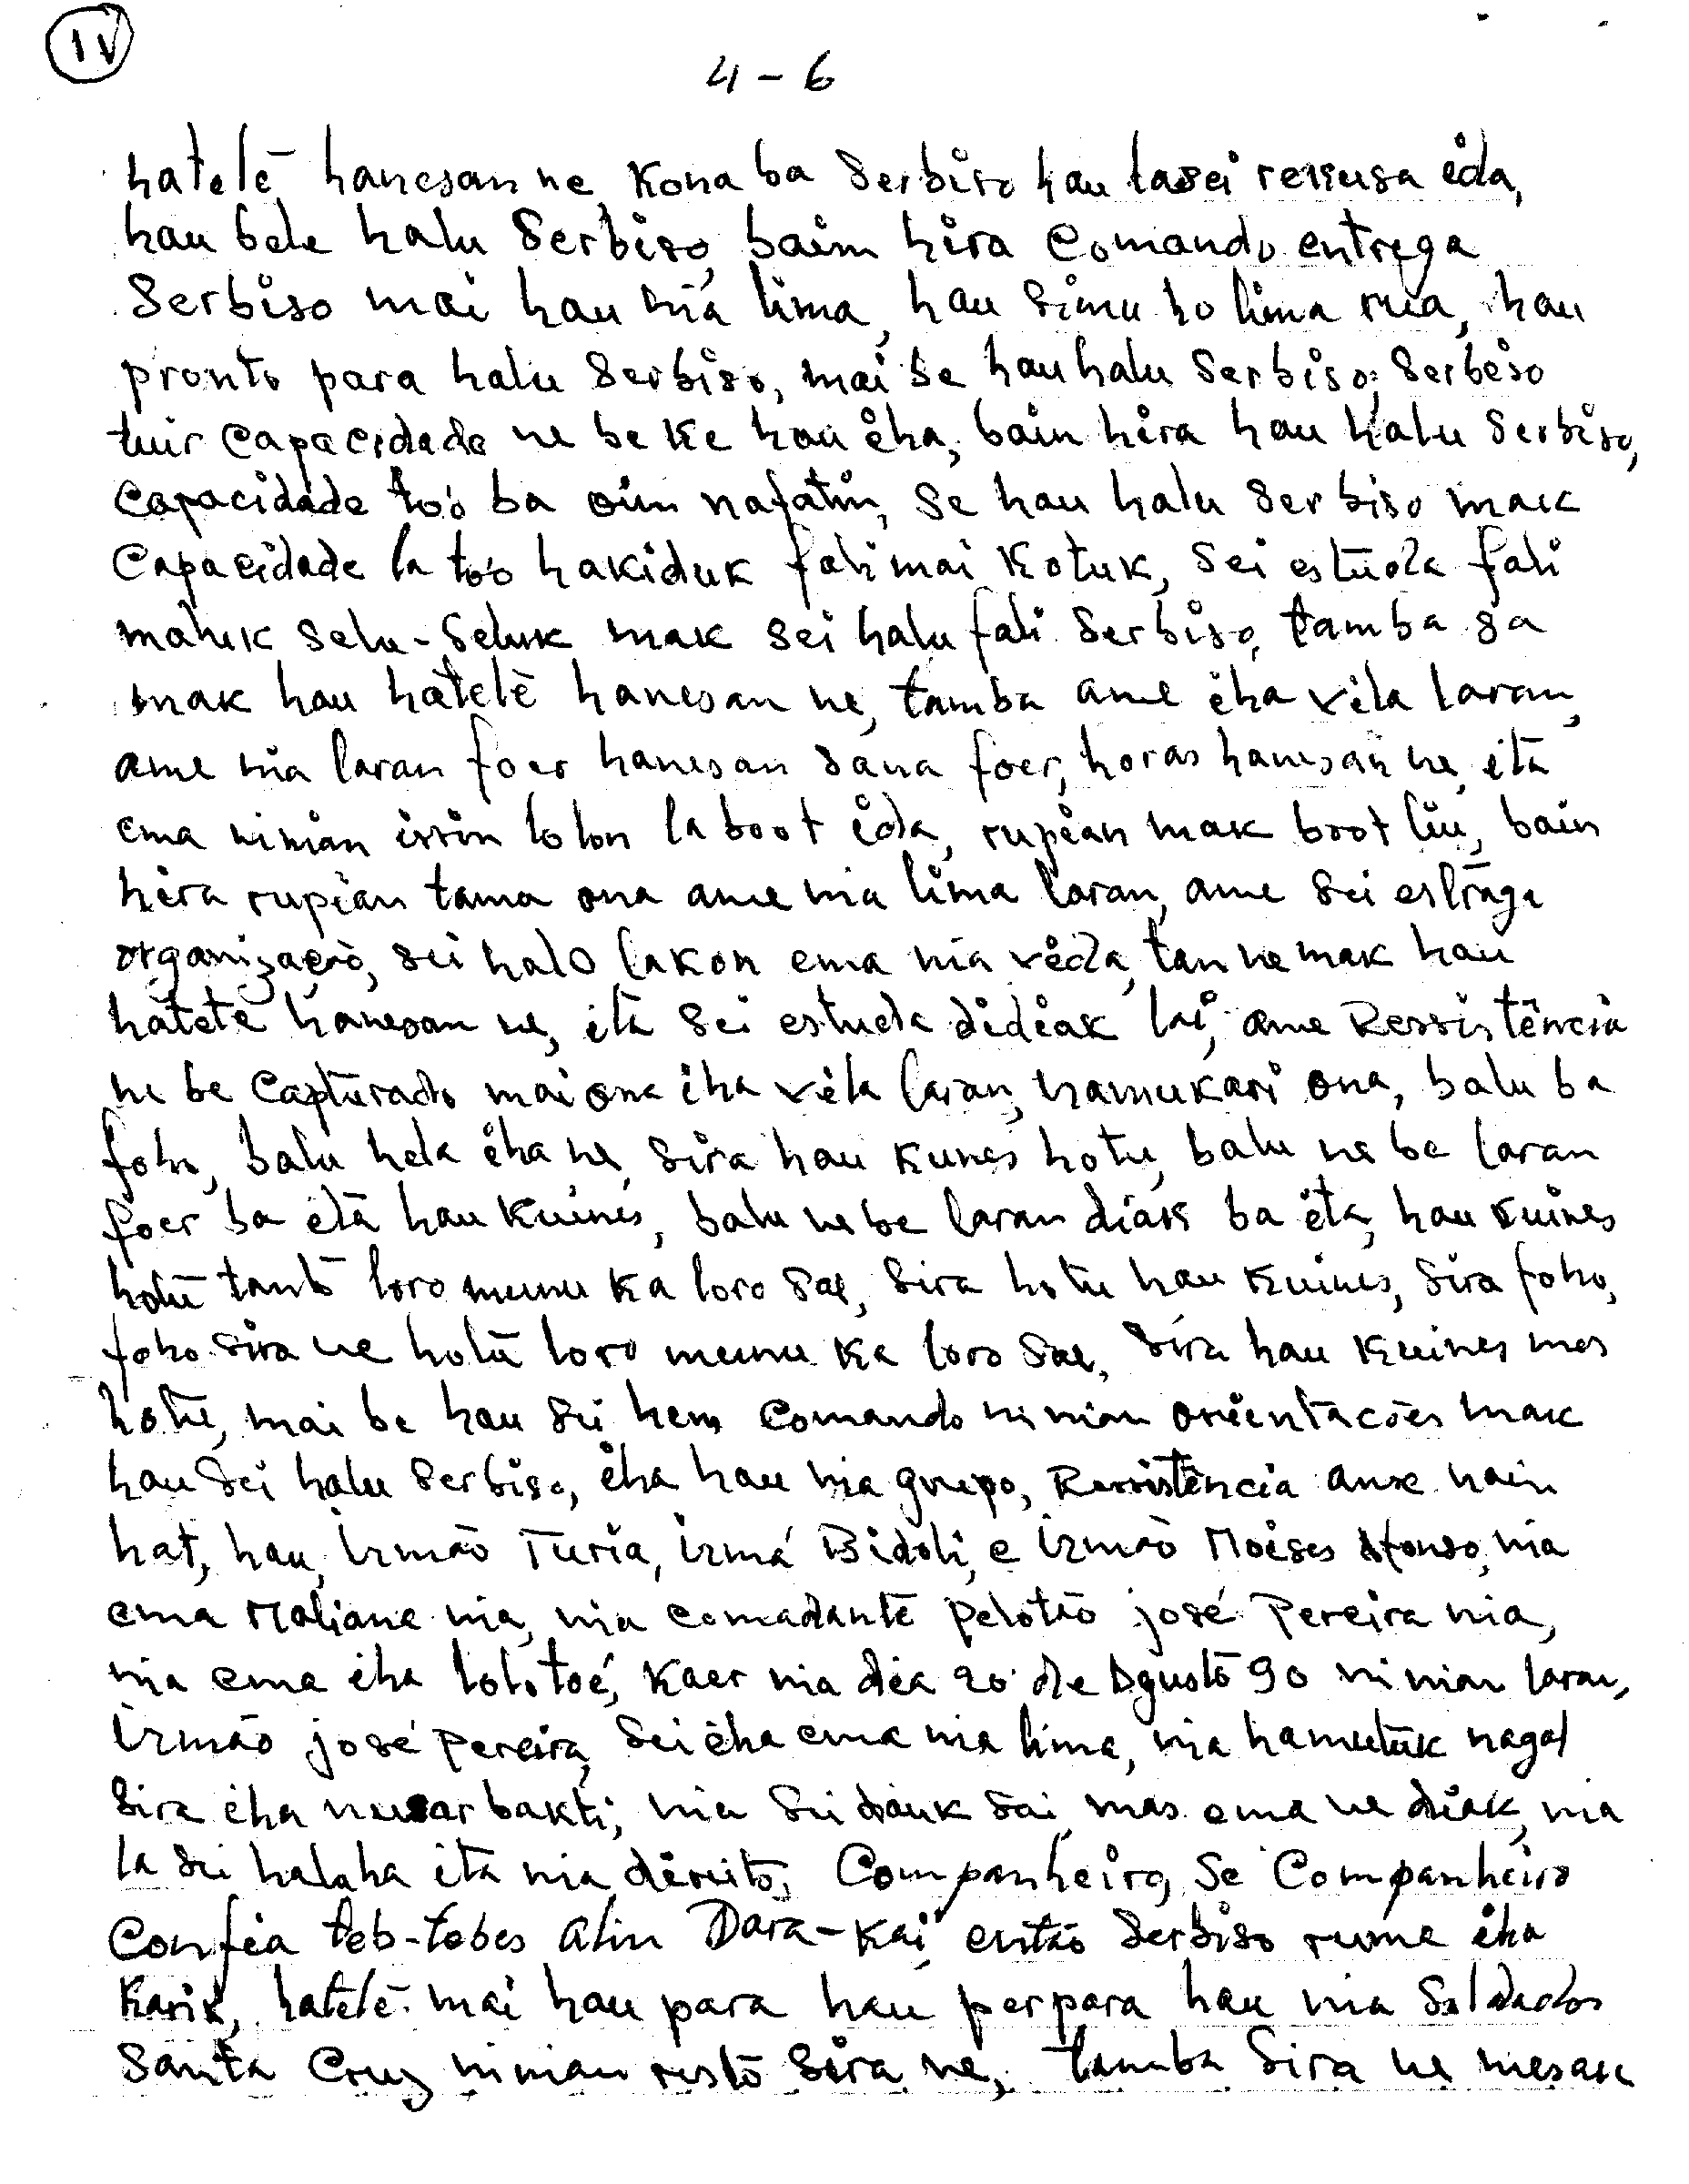 IV
4-6
hatetē hanesan ne, Kona ba Serbiso hau lasei rekusa ida,
hau bele halu Serbiso, bain hira Comando entrega
Serbiso mai hau nia lima, hau simu ho lima rua, hau
pronto para halu Serbiso, mai se hau halu Serbiso, Serbiso
tuir Capacidade ne be ke hau iha, bain hira hau halu Serbiso,
Capacidade to'o ba oin nafatin, se hau halu Serbiso mak
Capacidade la to'o hakiduk fali mai Kotuk, sei estuda fali
maluk selu-seluk mak sei halu fali Serbiso, tamba sa
mak hau hatetē hanesan ne, tamba ame iha vila laran,
ame nia laran foer hanesan sana foer, horas hanesan ne, ita
ema ninian issin lolon la boot ida, rupian mak boot liu, bain
hira rupian tama ona ame nia lima laran, ame sei estraga
organização, sei halo lakon ema nia vida, tan ne mak hau
hatetē hanesan ne, ita sei estuda didiak lai, ame Ressistência
ne be Capturado mai ona iha vila laran, namukari ona, balu ba
foho, balu hela iha ne, sira hau kunes hotu, balu ne be laran
foer ba ita hau kuines, balu ne be laran diak ba ita, hau kuines
hotu tanto loro munu ka loro sae, sira hotu hau kuines, sira foho,
foho sira ne hotu loro munu ka loro sae, sira hau kuines mos
hotu, mai be hau sei hein Comando ninian orientacões mak
hau sei halu Serbiso, iha hau nia grupo, Ressistência ame nain
hat, hau, Irmão Turia, Irmá Bidoli, e Irmão Moises Afonso, nia
ema Maliana nia, nia comadante pelotão josé Pereira nia,
nia ema iha lolotoé, kaer nia dia 20 de Agusto 90 ninian laran,
Irmão josé Pereira, sei iha ema nia lima, nia hamutuk nagal
sira iha nusar bakti, nia sei dauk sai, mas ema ne diak, nia
la sei haluha ita nia direito, Companheiro, Se Companheiro
Confia teb-tebes alin Dara-Kai, então Serbiso ruma iha
karik, hatetē mai hau para hau perpara hau nia Soldados
Santa Cruz ninian resto sira ne, tamba sira ne mesak